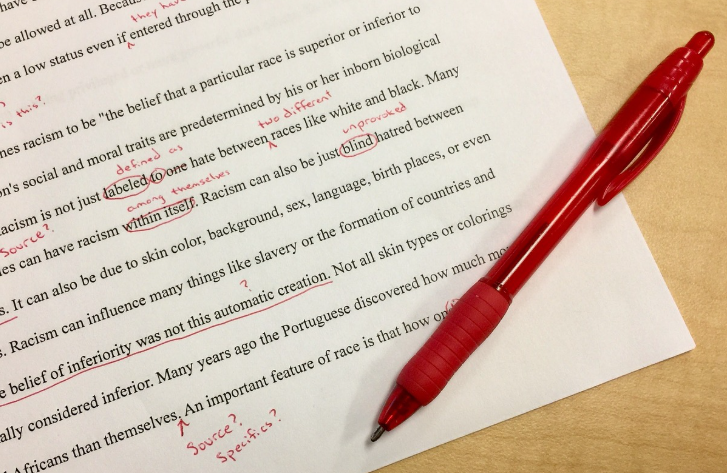 have c
be allowed at all. Becau
they have
en a low status even if entered through the p
?
is this?
nes racism to be "the belief that a particular race is superior or inferior to
on's social and moral traits are predetermined by his or her inborn biological
defined as
two different
unprovoked
acism is not just labeled to one hate between races like white and black. Many
Source?
among themselves
es can have racism within itself. Racism can also be just blind hatred between
s. It can also be due to skin color, background, sex, language, birth places, or even
s. Racism can influence many things like slavery or the formation of countries and
?
e belief of inferiority was not this automatic creation. Not all skin types or colorings
ally considered inferior. Many years ago the Portuguese discovered how much mo
Africans than themselves. An important feature of race is that how on
Source?
Specifics?